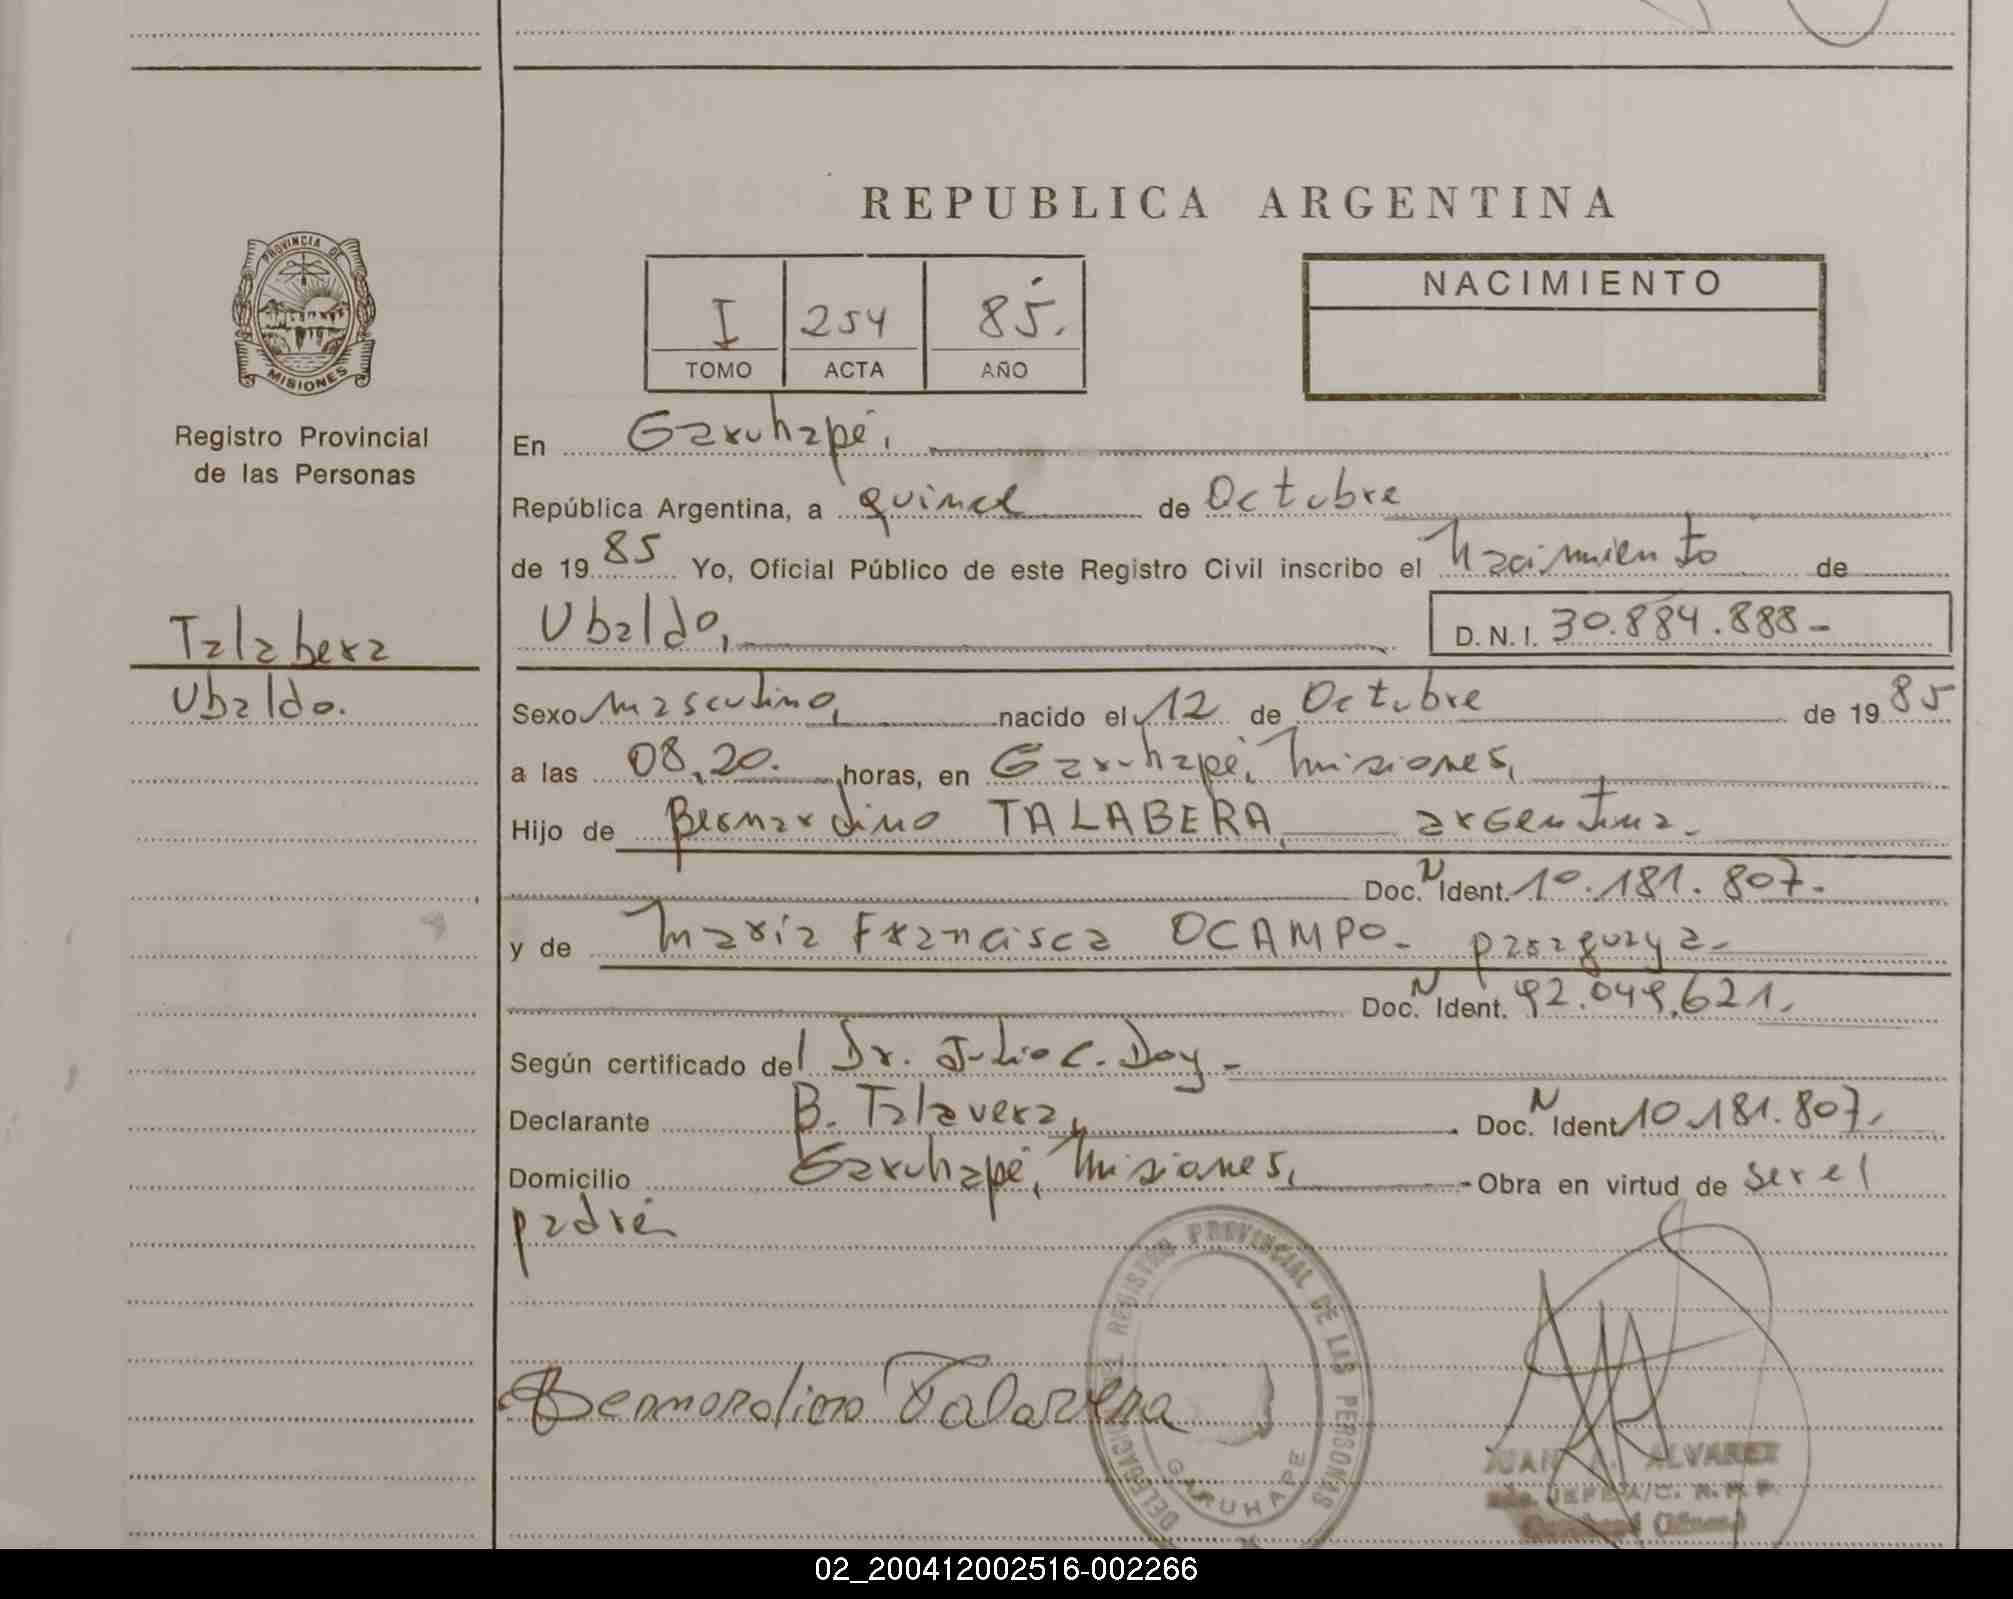 REPUBLICA ARGENTINA
PROVINCIA DE
MISIONES
Registro Provincial
de las Personas
I 254 85.
TOMO ACTA AÑO
NACIMIENTO
En Garuhapé,
República Argentina, a quince de Octubre
de 1985 Yo, Oficial Público de este Registro Civil inscribo el Nacimiento de
Talabera
Ubaldo.
Ubaldo,
D.N.I. 30.884.888-
Sexo masculino, nacido el 12 de Octubre de 1985
a las 08,20. horas, en Garuhapé, Misiones,
Hijo de Bernardino TALABERA argentina.
Doc. N Ident. 10.181.807.-
y de María Francisca OCAMPO- paraguaya-
Doc. N Ident. 92.049.621,
Según certificado del Dr. Julio C. Doy-
Declarante B. Talavera, Doc. N Ident 10.181.807,
Domicilio Garuhapé, Misiones, - Obra en virtud de ser el
padre
Bernardino Talavera
DELEGACION REGISTRO PROVINCIAL DE LAS PERSONAS
GARUHAPE
JUAN A. ALVAREZ
02_200412002516-002266